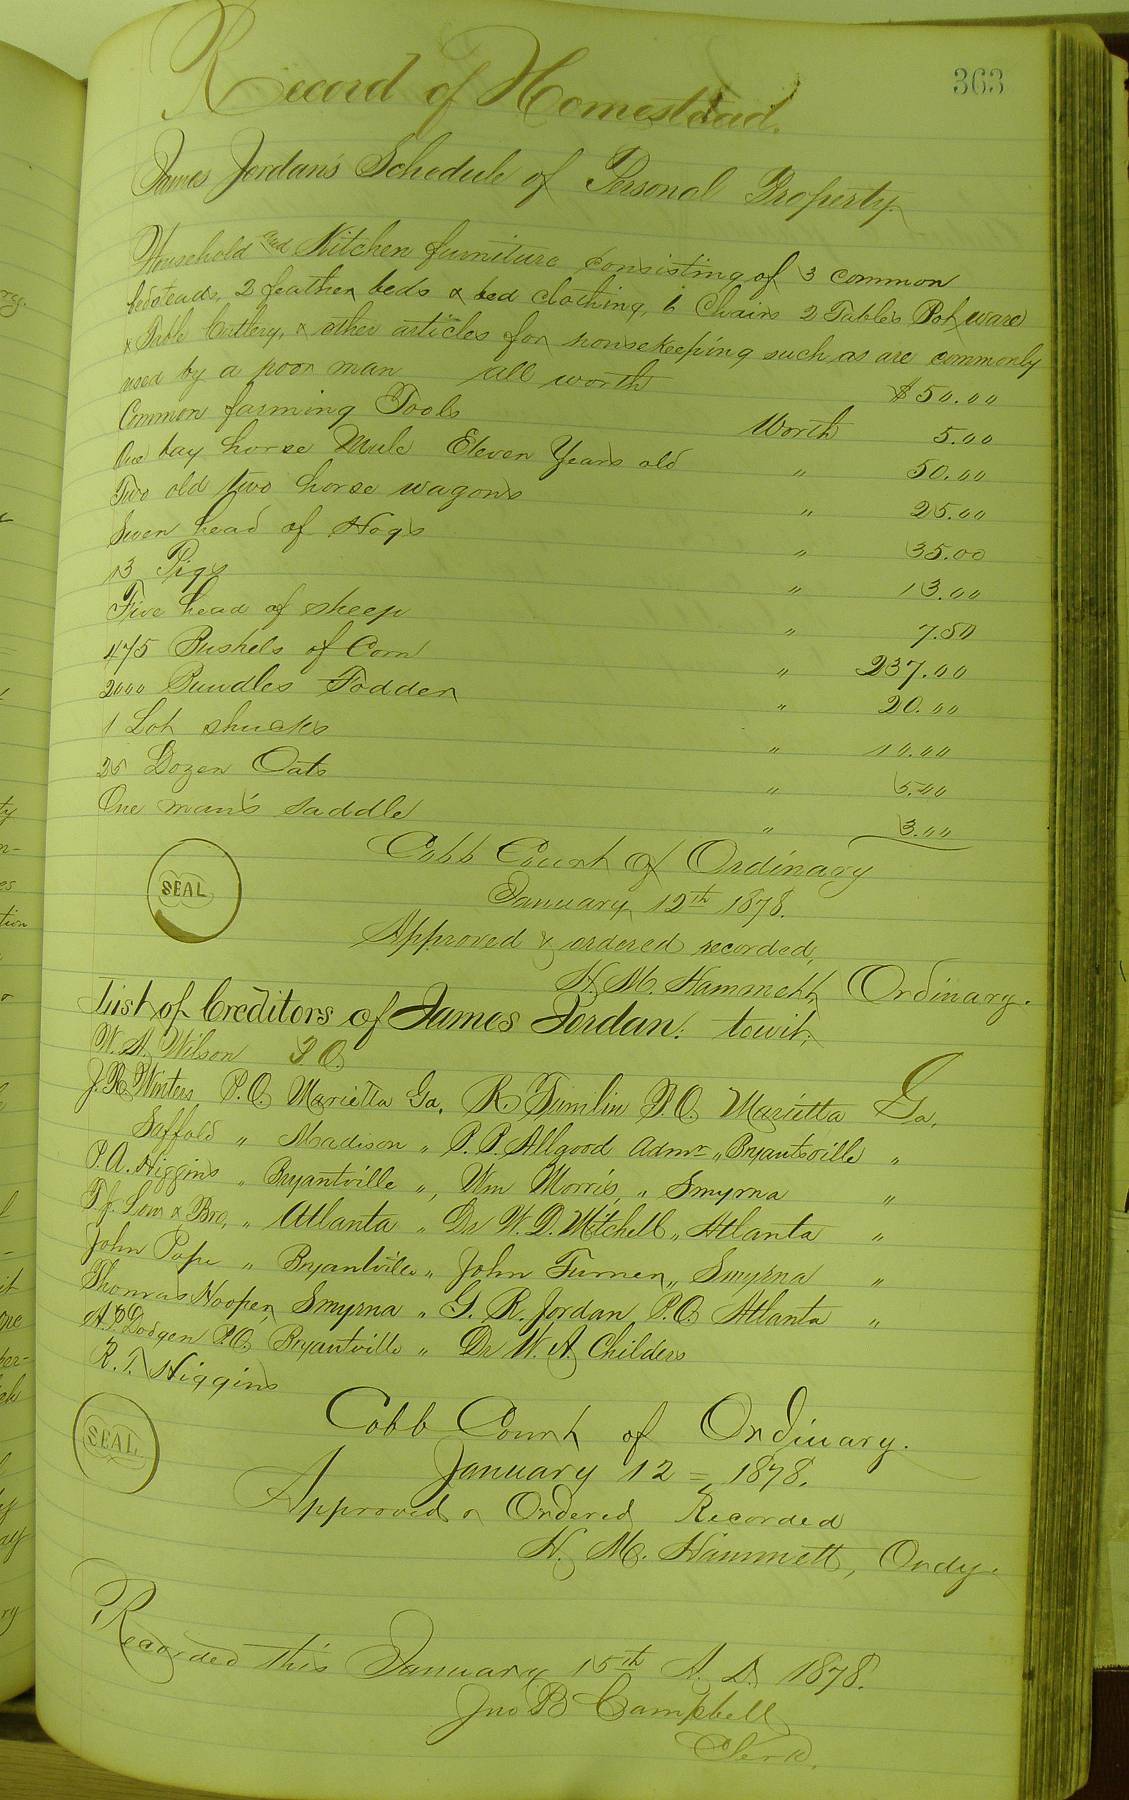 363
Record of Homestead.
James Jordan's Schedule of Personal Property.
Household and Kitchen furniture consisting of 3 common
bedsteads, 2 feather beds & bed clothing, 6 Chairs 2 Tables Pot ware
& Table Cutlery, & other articles for housekeeping such as are commonly
used by a poor man all worth $50.00
Common farming Tools Worth 5.00
One bay horse Mule Eleven Years old " 50.00
Two old two horse wagons " 25.00
Seven head of Hogs " 35.00
13 Pigs " 13.00
Five head of sheep " 7.50
475 Bushels of Corn " 237.00
2000 Bundles Fodder " 20.00
1 Lot shucks " 10.00
25 Dozen Oats " 5.00
One man's saddle " 3.00
Cobb Court of Ordinary
SEAL
January 12th 1878.
Approved & ordered recorded,
H. M. Hammett, Ordinary.
List of Creditors of James Jordan. towit,
W. A. Wilson P.O.
J. R. Winters P.O. Marietta Ga, R. Tumlin P.O. Marietta Ga,
Saffold " Madison " P. P. Allgood Admr " Bryantsville "
P. A. Higgins " Bryantville ", Wm Morris, " Smyrna "
& Bro, " Atlanta " Dr W. D. Mitchell " Atlanta "
John Pope " Bryantville " John Turner " Smyrna "
Thomas Hooper, Smyrna " G. R. Jordan P.O. Atlanta "
Dodgen P.O. Bryantville " Dr W. A. Childers
R. T. Higgins
Cobb Court of Ordinary.
SEAL
January 12 = 1878.
Approved & Ordered Recorded
H. M. Hammett, Ordy.
Recorded this January 15th A. D. 1878.
Jno B Campbell
Clerk.